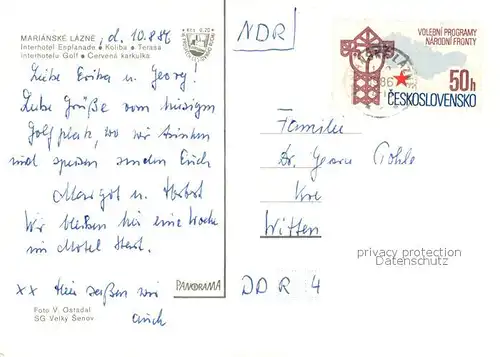 MARIÁNSKÉ LÁZNĚ, d. 10.8.86
Interhotel Esplanade • Koliba • Terasa
Interhotelu Golf • Červená karkulka
Kčs 0,70
Liebe Erika u. Georg!
Liebe Grüße vom hiesigen
Golfplatz, wo wir trinken
und speisen senden Euch
Margot u. Herbst
Wir bleiben hier eine Woche
im Hotel
xx Hier saßen wir
auch
Foto V.
SG Velký Šenov
PANORAMA
NDR
VOLEBNÍ PROGRAMY
NÁRODNÍ FRONTY
50h
ČESKOSLOVENSKO
Familie
Dr. Georg Pohle
Witten
privacy protection
Datenschutz
DDR 4